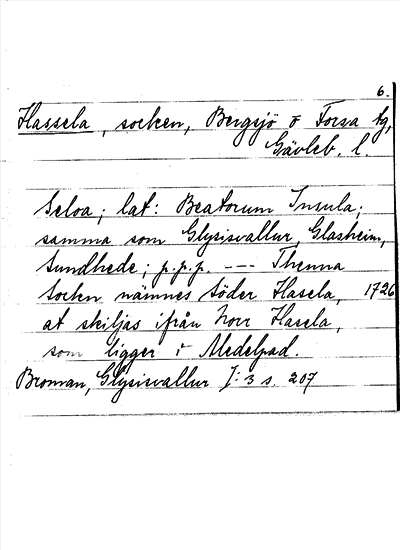 6.
Hassela, socken, Bergsjö o Forsa tg,
Gävleb. l.
Seloa; lat: Beatorum Insula;
samma som Glysisvallur, Glasheim,
Sundhede; p.p.p. --- Thenna
Socken nämnes Söder Hasela, 1726
at skiljas ifrån Norr Hasela,
som ligger i Medelpad.
Broman, Glysisvallur I: 3 s. 207